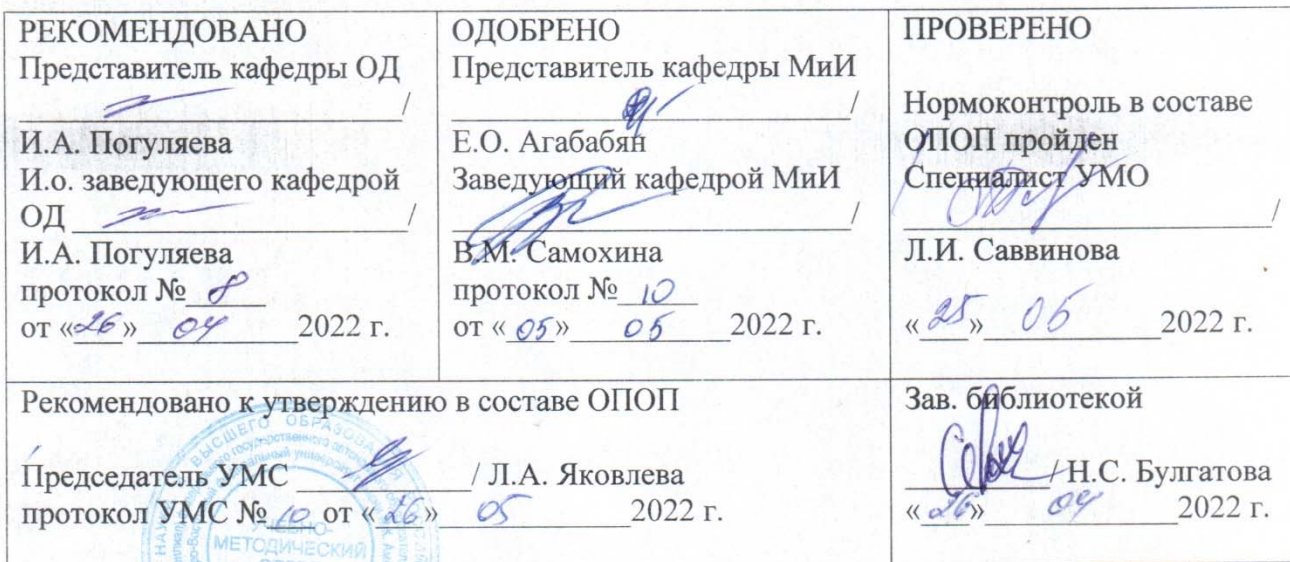 РЕКОМЕНДОВАНО
Представитель кафедры ОД
/
И.А. Погуляева
И.о. заведующего кафедрой
ОД /
И.А. Погуляева
протокол № 8
от «26» 04 2022 г.
ОДОБРЕНО
Представитель кафедры МиИ
/
Е.О. Агабабян
Заведующий кафедрой МиИ
/
В.М. Самохина
протокол № 10
от «05» 05 2022 г.
ПРОВЕРЕНО
Нормоконтроль в составе
ОПОП пройден
Специалист УМО
/
Л.И. Саввинова
«25» 05 2022 г.
Рекомендовано к утверждению в составе ОПОП
Председатель УМС / Л.А. Яковлева
протокол УМС № 10 от «26» 05 2022 г.
ВЫСШЕГО ОБРАЗОВАНИЯ
УЧЕБНО-
МЕТОДИЧЕСКИЙ
Зав. библиотекой
/ Н.С. Булгатова
«26» 04 2022 г.